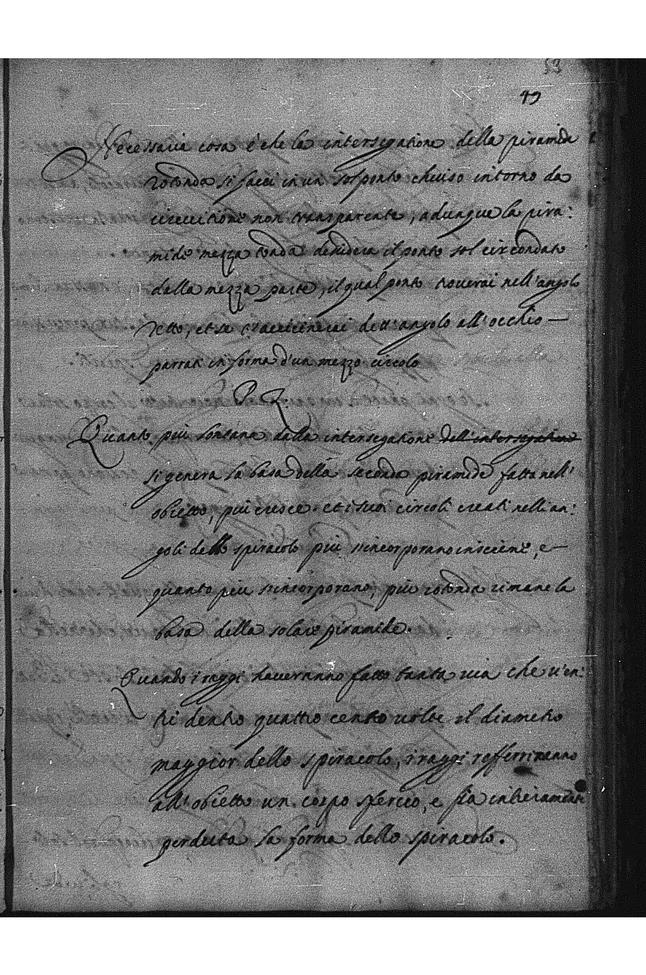 53
49
Necessaria cosa è che la intersegatione della piramida
rotonda si facci in un sol ponto chiuso intorno da
circuitione non transparente, adunque la pira:
mide mezza tonda desidera il ponto sol circondato
dalla mezza parte, il qual ponto troverai nell'angolo
detto, et se t'avicinerai dett'angolo all'occhio –
parrati in forma d'un mezzo circolo
Quanto più lontana dalla intersegatione dell'intersegatione
si genera la basa della seconda piramide fatta nell'
obietto, più cresce et i suoi circoli creati nelli an:
goli dello spiracolo più s'incorporano insieme, e –
quanto più s'incorporano, più rotonda rimane la
basa della solare piramide.
Quando i raggi haveranno fatto tanta via che v'en:
tri dentro quattro cento volte il diametro
maggior dello spiracolo, i raggi refferiranno
all'obietto un corpo sferico, e fia intieramente
perduta la forma dello spiracolo.